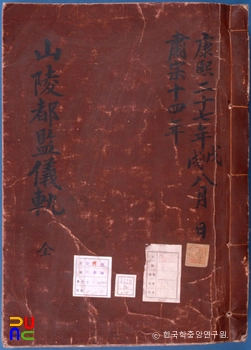 康熙二十七年戊辰八月 日
肅宗十四年
山陵都監儀軌 全
ⓒ한국학중앙연구원